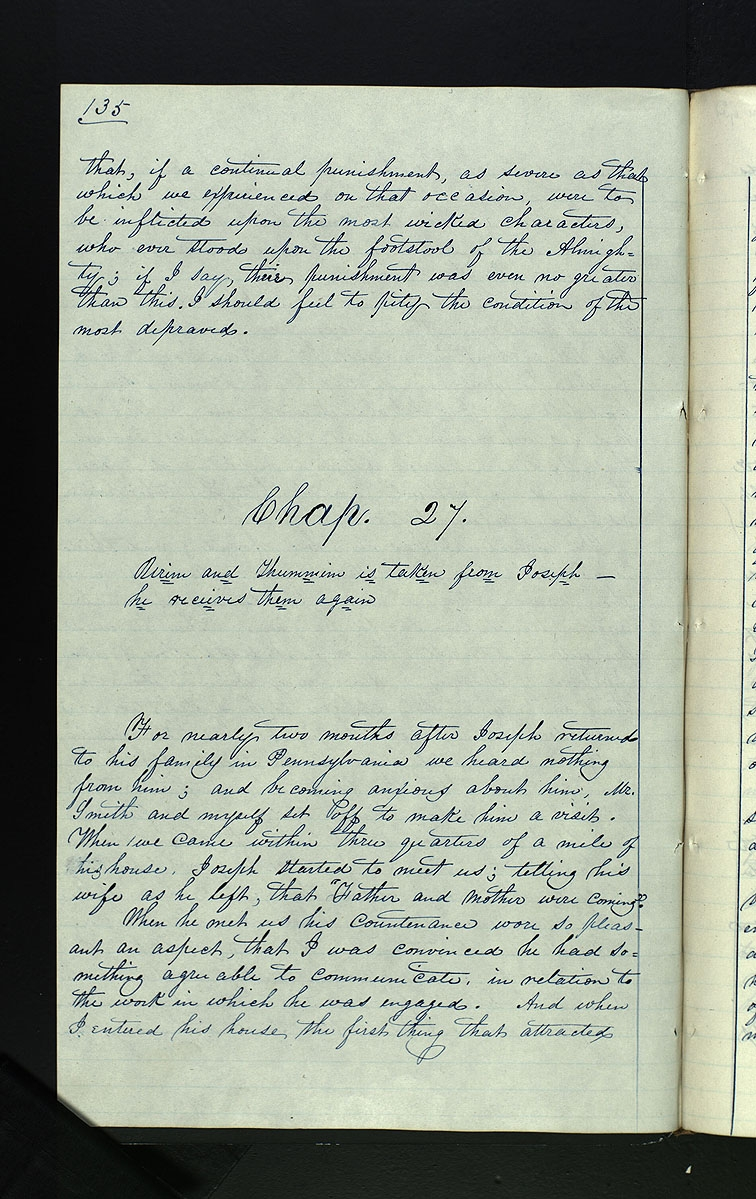 135
that, if a continual punishment, as severe as that
which we experienced on that occasion, were to
be inflicted upon the most wicked characters,
who ever stood upon the footstool of the Almigh=
ty; if I say, their punishment was even no greater
than this, I should feel to pity the condition of the
most depraved.
Chap. 27.
Urim and Thummim is taken from Joseph —
he receives them again
For nearly two months after Joseph returned
to his family in Pennsylvania we heard nothing
from him; and becoming anxious about him, Mr.
Smith and myself set off to make him a visit.
When we came within three quarters of a mile of
his house, Joseph started to meet us; telling his
wife as he left, that "Father and Mother were coming".
When he met us his countenance wore so pleas-
ant an aspect, that I was convinced he had so=
mething agreeable to communicate, in relation to
the work in which he was engaged. And when
I entered his house, the first thing that attracted